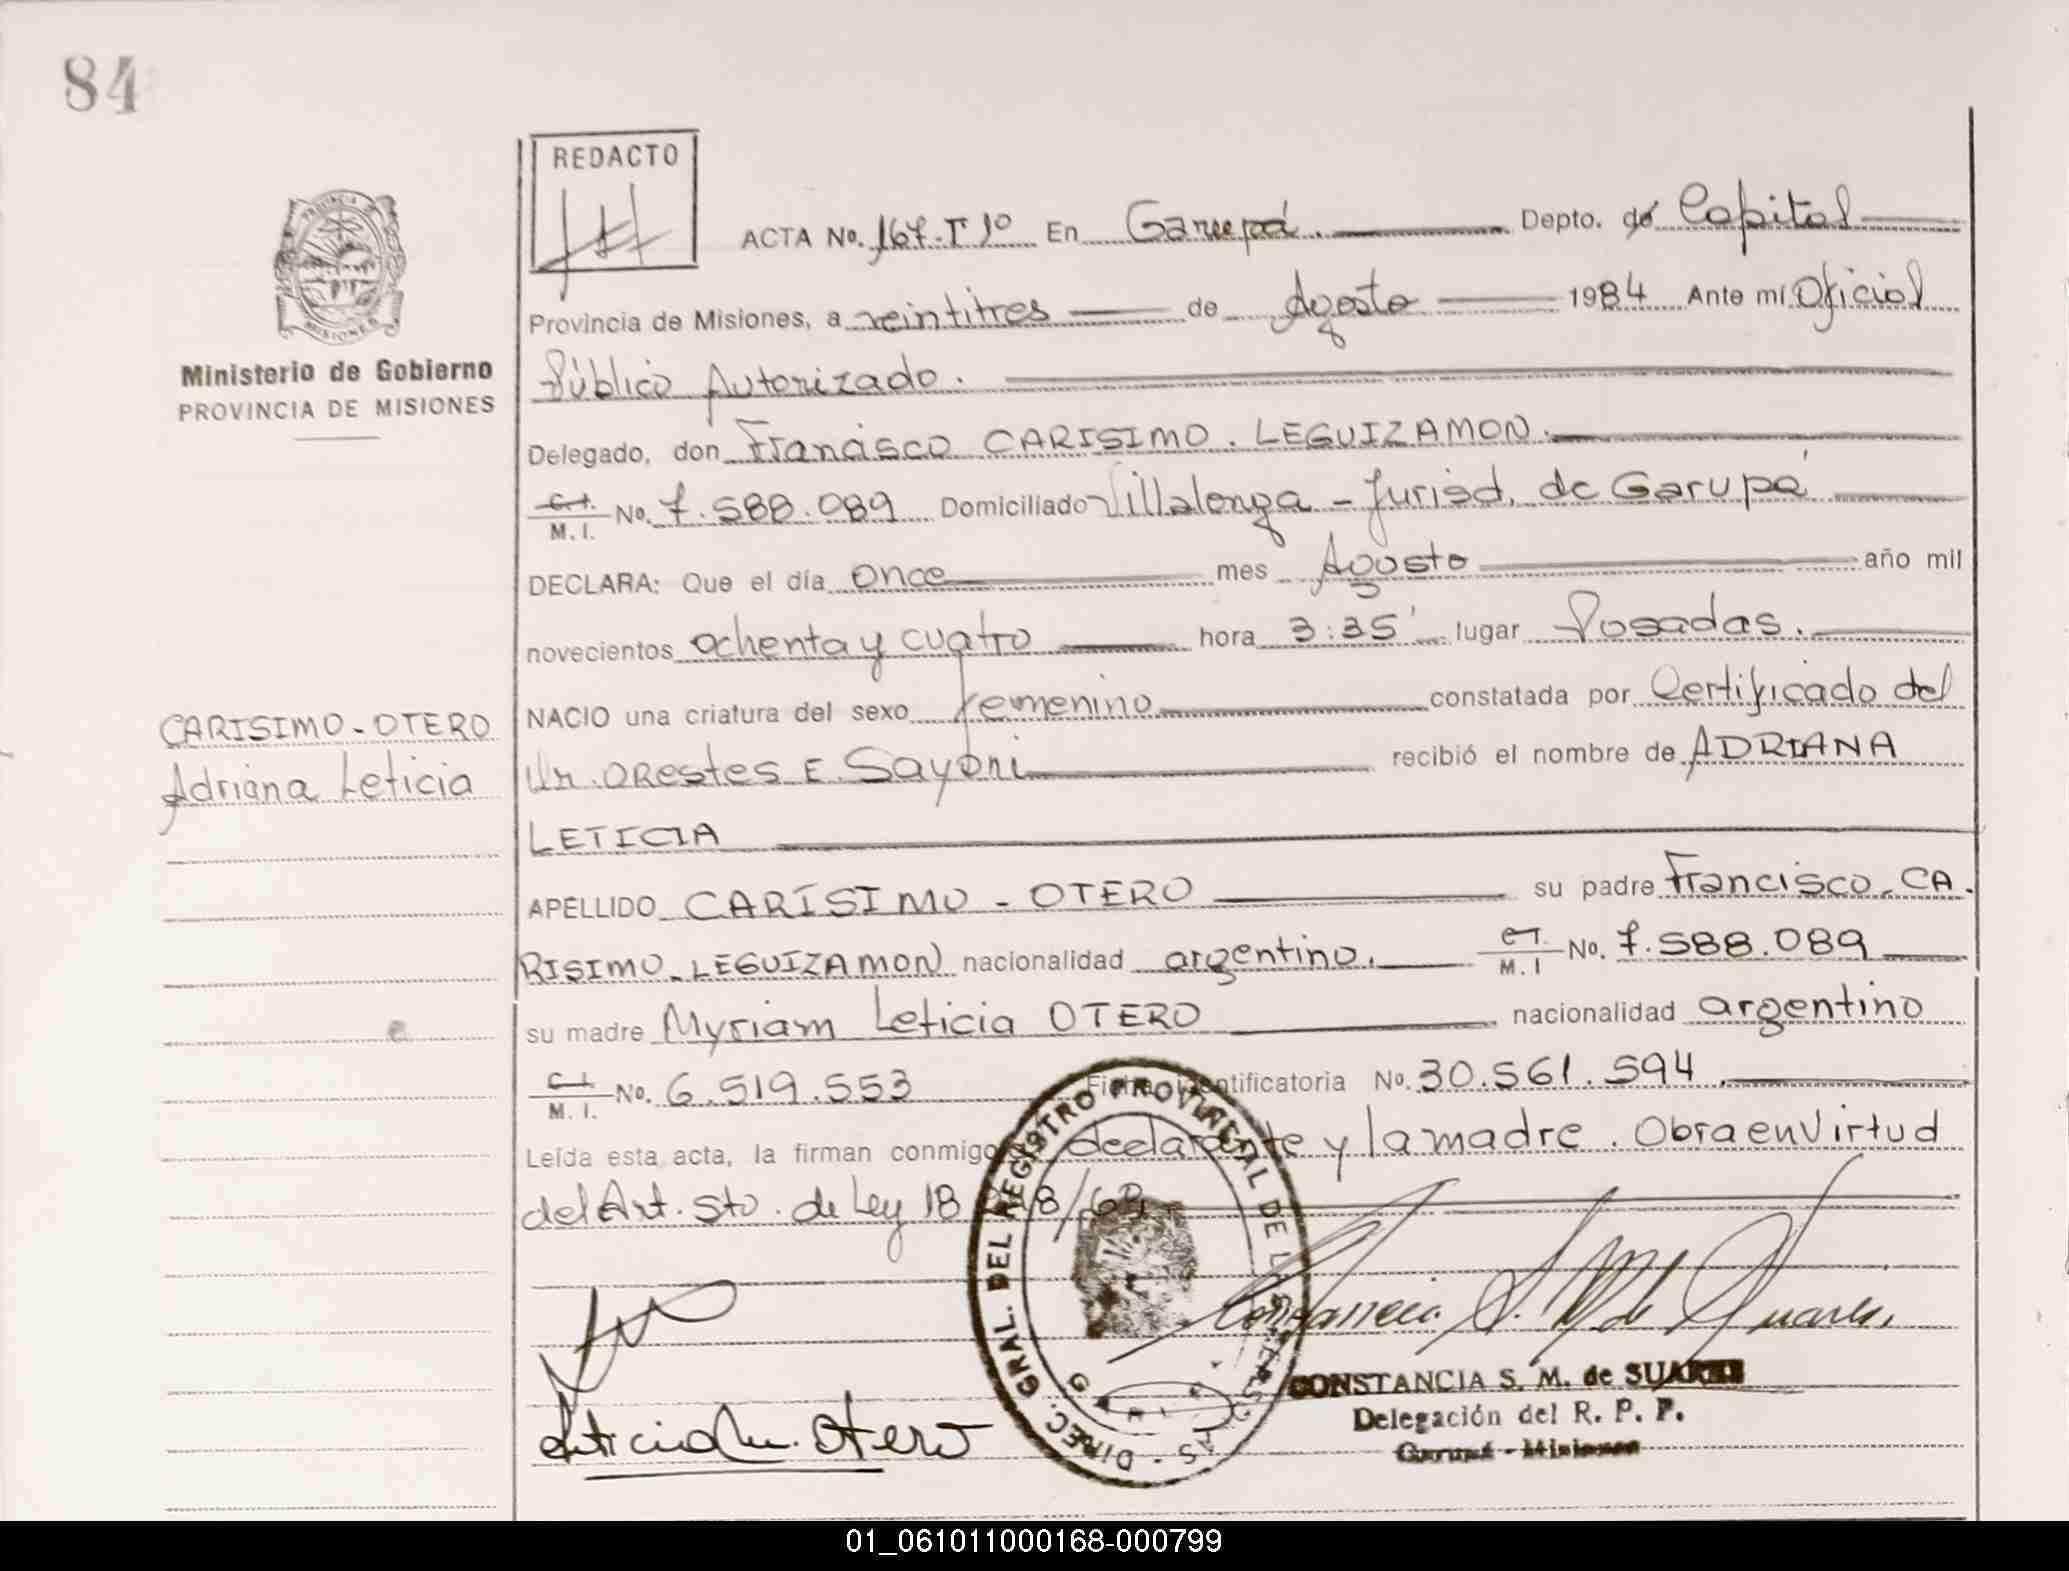 84
REDACTO
PROVINCIA DE
MISIONES
Ministerio de Gobierno
PROVINCIA DE MISIONES
ACTA No. 167-T 1º En Garupá. Depto. de Capital
Provincia de Misiones, a veintitres de Agosto 1984 Ante mí Oficial
Público Autorizado.
Delegado, don Francisco CARISIMO. LEGUIZAMON.
C.I. M.I. No. 7.588.089 Domiciliado Villalonga - Jurisd. de Garupá
DECLARA: Que el día once mes Agosto año mil
novecientos ochenta y cuatro hora 3:35' lugar Posadas.
NACIO una criatura del sexo femenino constatada por Certificado del
Dr. ORESTES E. Sayoni recibió el nombre de ADRIANA
LETICIA
CARISIMO-OTERO
Adriana Leticia
APELLIDO CARÍSIMO - OTERO su padre Francisco. CA.
RISIMO-LEGUIZAMON nacionalidad argentino. C.I. M.I No. 7.588.089
su madre Myriam Leticia OTERO nacionalidad argentino
C.I. M.I. No. 6.519.553 Ficha identificatoria No. 30.561.594
Leída esta acta, la firman conmigo declarante y la madre. Obra en Virtud
del Art. 5to. de Ley 18 8/69
DIREC. GRAL. DEL REGISTRO PROVINCIAL DE LAS PERSONAS
Leticia M. Otero
Constancia S. M. de Suarez.
CONSTANCIA S. M. de SUAREZ
Delegación del R. P. P.
Garupá - Misiones
01_061011000168-000799